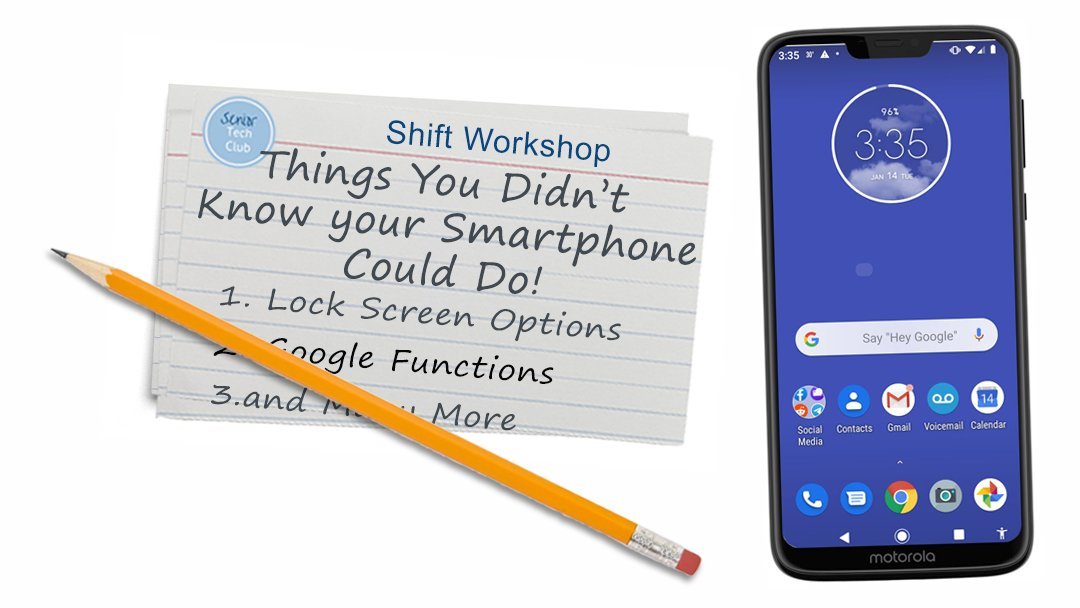 Senior
Tech
Club
Shift Workshop
Things You Didn't
Know your Smartphone
Could Do!
1. Lock Screen Options
2. Google Functions
3.and Many More
3:35 30°
96%
3:35
JAN 14 TUE
Say "Hey Google"
Social Contacts Gmail Voicemail Calendar
Media
14
motorola